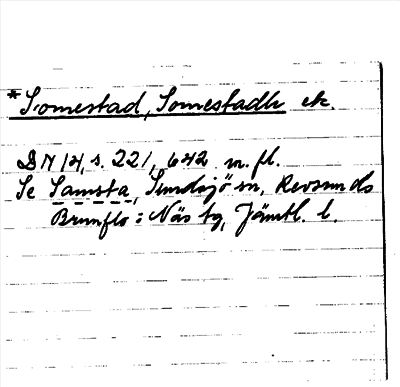 *Somestad, Somestadh etc.
DN 14, s. 221, 642 m. fl.
Se Samsta, Sundsjö sn, Revsunds
Brunflo: Näs tg, Jämtl. l.